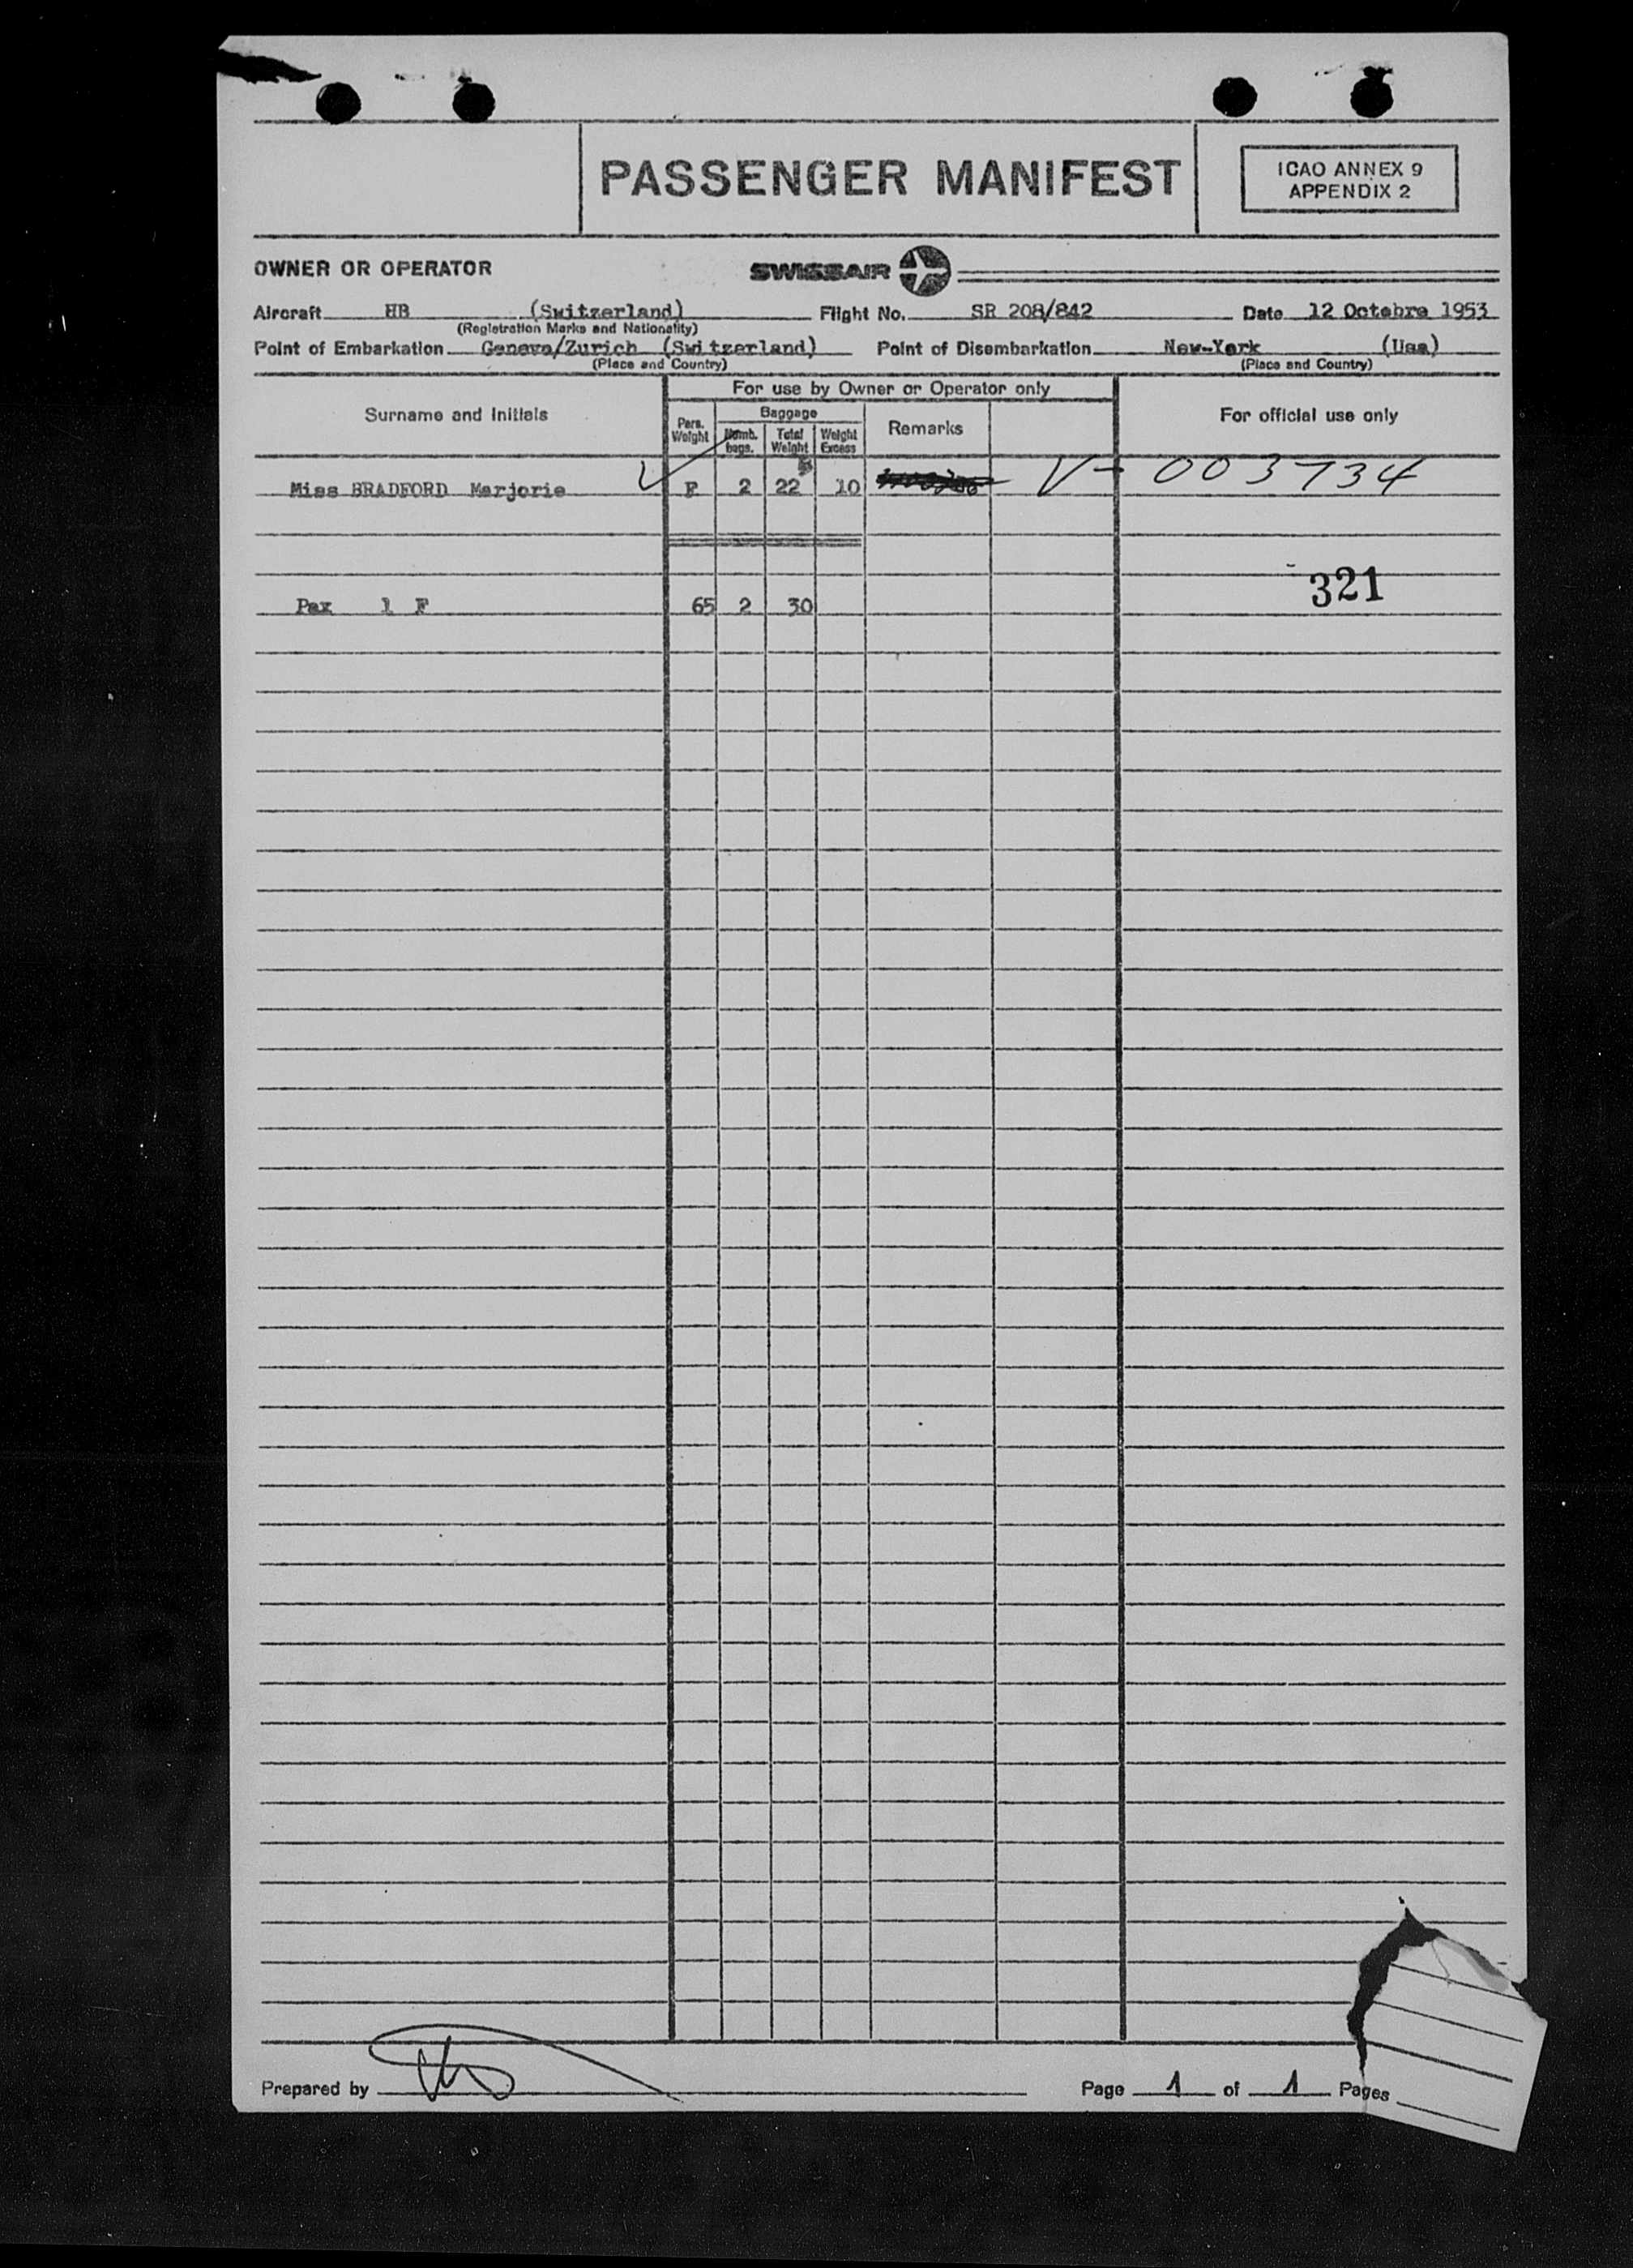 PASSENGER MANIFEST
ICAO ANNEX 9
APPENDIX 2
OWNER OR OPERATOR SWISSAIR
Aircraft HB (Switzerland) Flight No. SR 208/842 Date 12 Octobre 1953
(Registration Marks and Nationality)
Point of Embarkation Geneva/Zurich (Switzerland) Point of Disembarkation New-York (Usa)
(Place and Country) (Place and Country)
For use by Owner or Operator only
Surname and Initials Pers. Weight Baggage Numb. bags. Total Weight Weight Excess Remarks For official use only
Miss BRADFORD Marjorie F 2 22 10 V- 003734
321
Pax 1 F 65 2 30
Prepared by Page 1 of 1 Pages